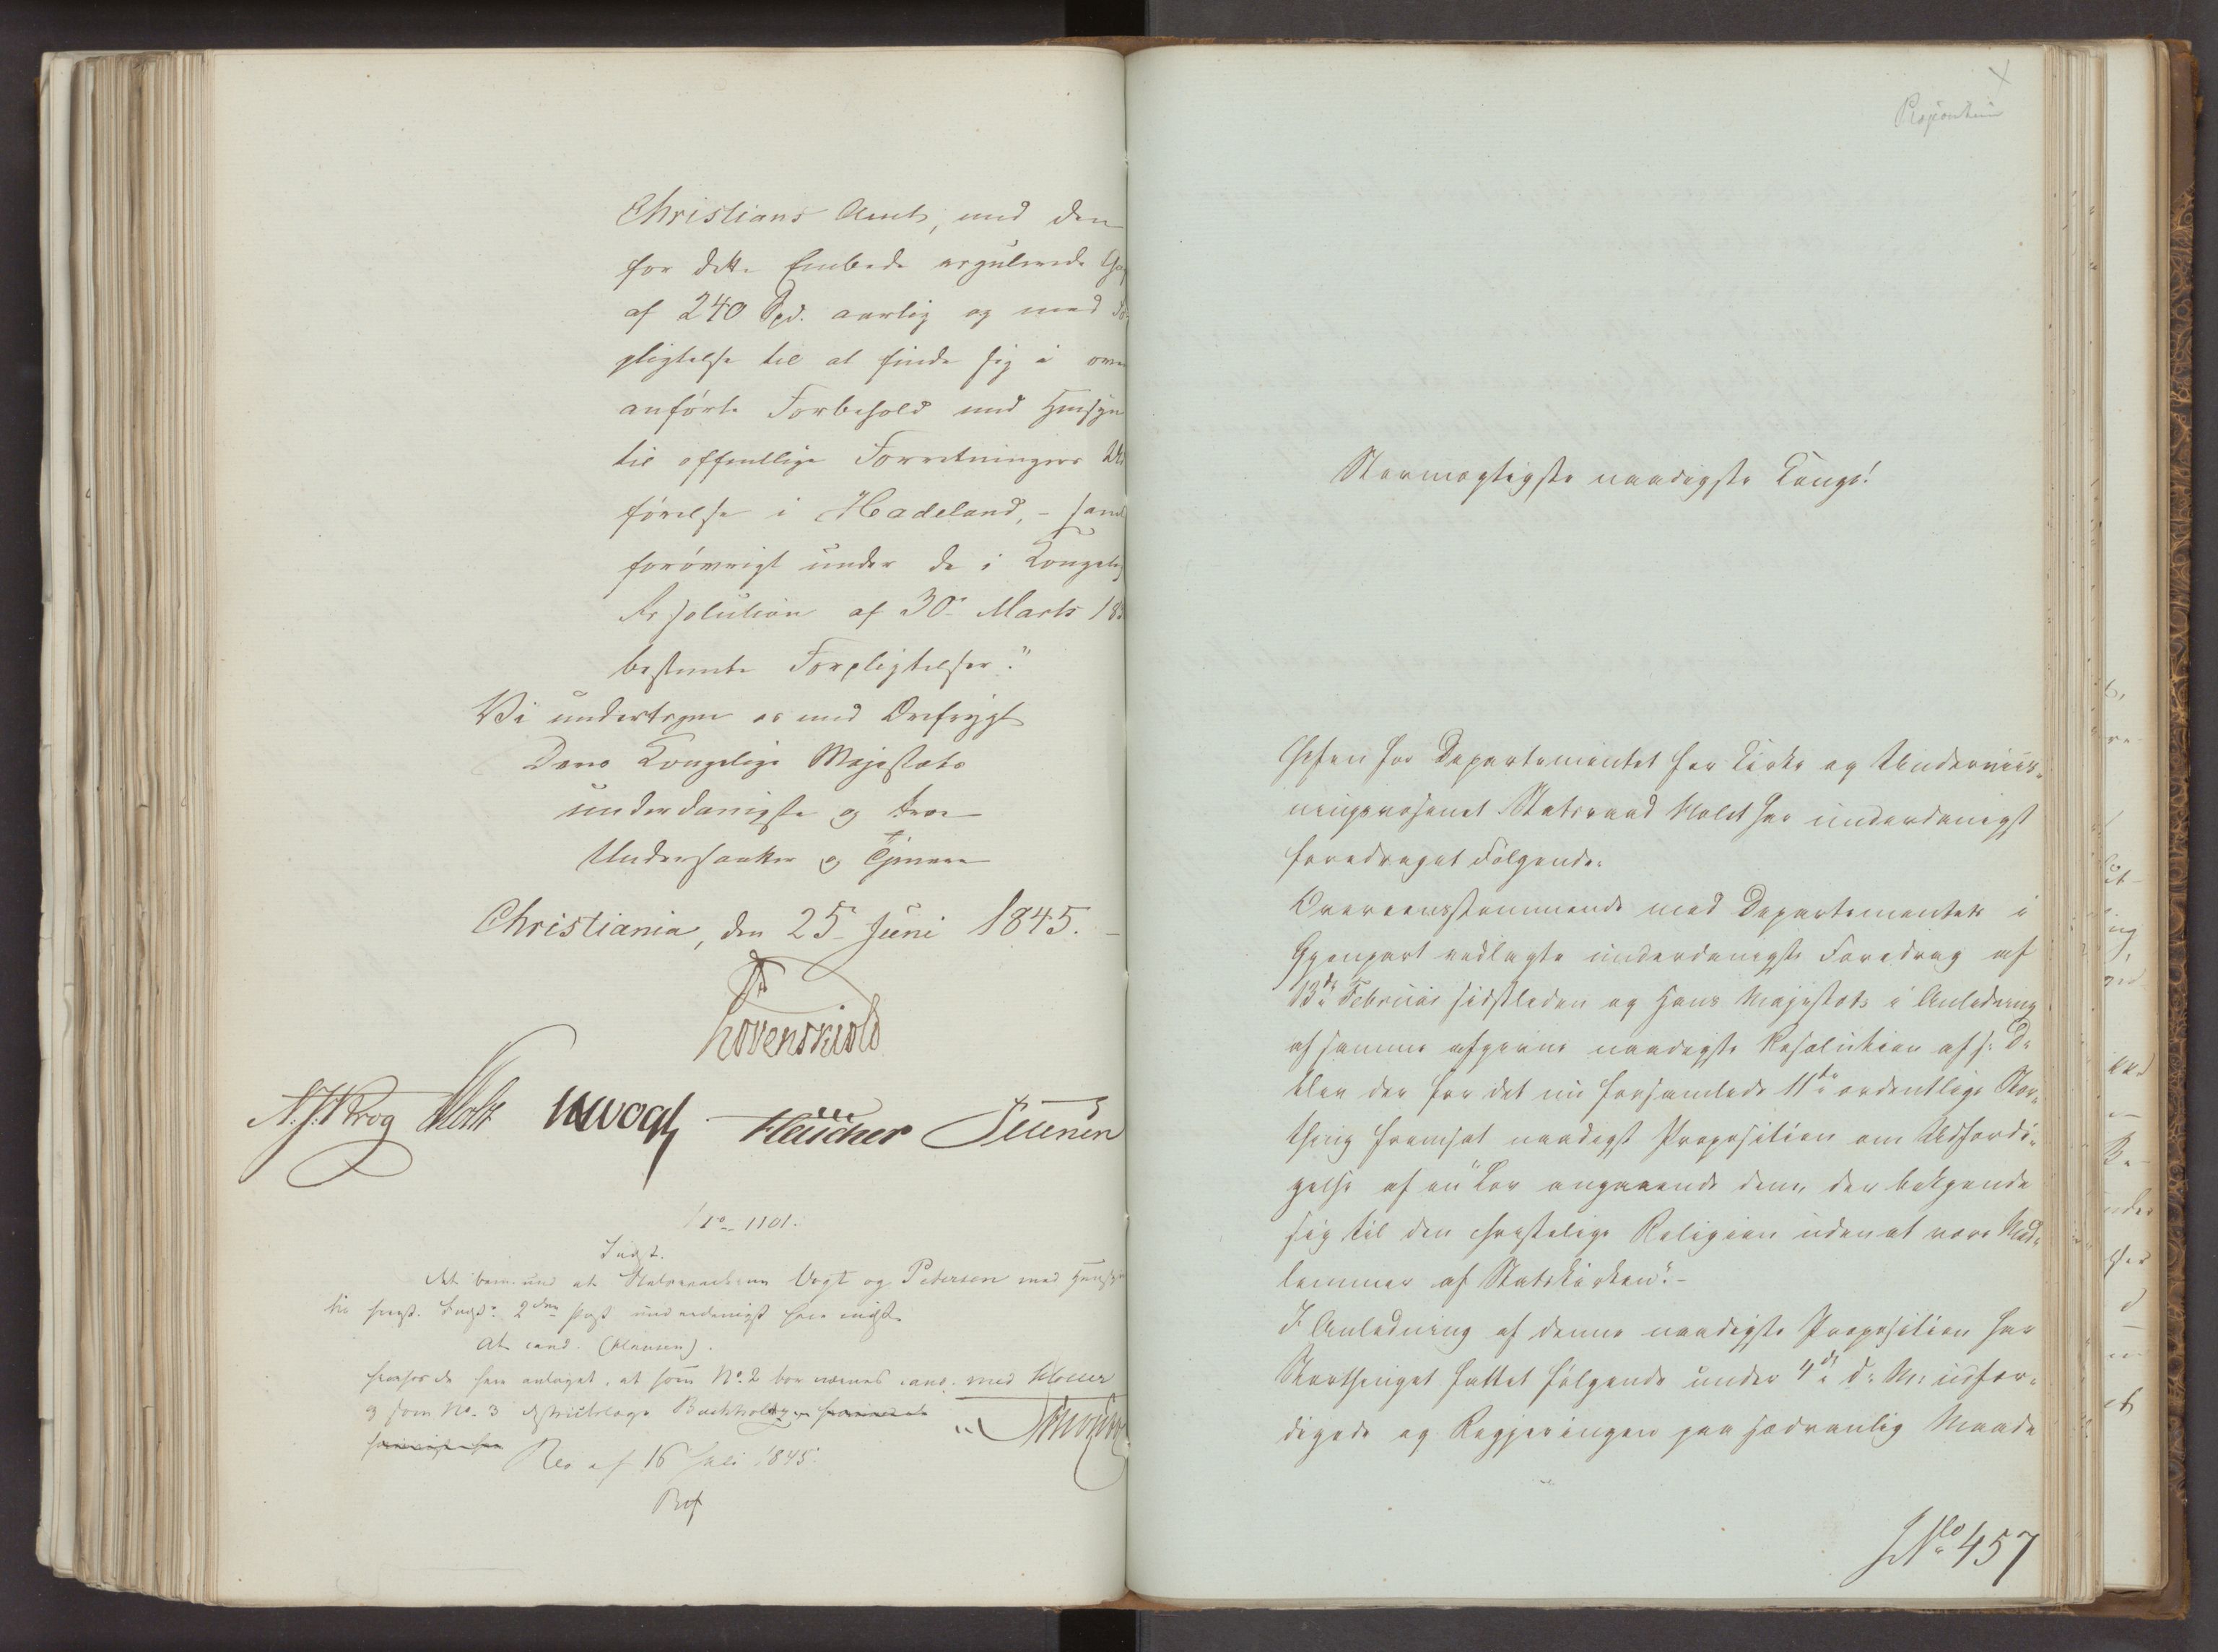 Christians Amt, med den
for dette Embede regulerede
af 240 Spd. aarlig og med
pligtelse til at finde sig i oven
anførte Forbehold med Hensyn
til offentlige Forretningers Ud
førelse i Hadeland, – samt
forøvrigt under de i Kongelig
Resolution af 30. Marts 18
bestemte Forpligtelser."
Vi undertegne os med Ærefrygt
Deres Kongelige Majestæts
underdanigste og troe
Undersaatter og Tjenere
Christiania, den 25. Juni 1845.
Løvenskiold
N. J. Krog Holst Vogt
No. 1101.
Indst.
Det bem. at Statsraaderne Vogt og Petersen med Hensyn
til 2den Post underdanigst
At cand. (Clausen).
antaget, at som No. 2 bør nævnes cand. med
og som No. 3 districtslæge Buchholdz
Res af 16 Juli 1845.
Proposition
Stormægtigste naadigste Konge!
Chefen for Departementet for Kirke og Underviis-
ningsvæsenet Statsraad Holst har underdanigst
foredraget Følgende:
Overeensstemmende med Departementets i
Gjenpart vedlagte underdanigste Foredrag af
13de Februar sidstleden og Hans Majestæts i Anledning
af samme afgivne naadigste Resolution af s. D.
blev der for det nu forsamlede 11te ordentlige Stor-
thing fremsat naadigst Proposition om Udfærdi-
gelse af en "Lov angaaende dem, der bekjende
sig til den christelige Religion uden at være Med-
lemmer af Statskirken".-
I Anledning af denne naadigste Proposition har
Storthinget fattet følgende under 4de d. M. udfær-
digede og Regjeringen paa sædvanlig Maade
J No 457